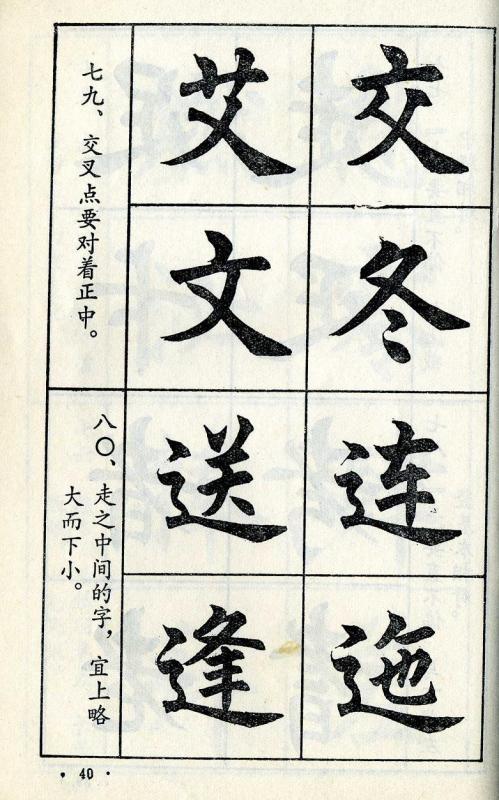 交
冬
艾
文
七九、交叉点要对着正中。
连
迤
送
逢
八〇、走之中间的字，宜上略
大而下小。
• 40 •